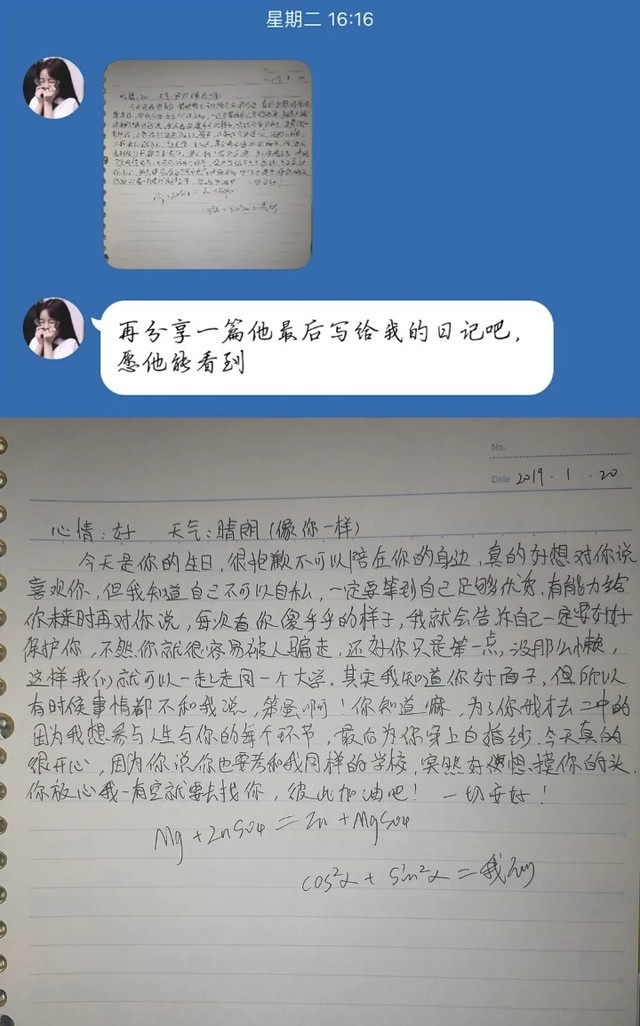 星期二 16:16
再分享一篇他最后写给我的日记吧，
愿他能看到
No.
Date 2019 . 1 . 20
心情：好 天气：晴朗（像你一样）
今天是你的生日，很抱歉不可以陪在你的身边，真的好想对你说
喜欢你，但我知道自己不可以自私，一定要等到自己足够优秀，有能力给
你未来时再对你说，每次看你傻乎乎的样子，我就会告诉自己一定要好好
保护你，不然你就很容易被人骗走，还好你只是笨一点，没那么懒，
这样我们就可以一起走同一个大学。其实我知道你好面子，但所以
有时候事情都不和我说，笨蛋啊！你知道嘛，为了你我才去二中的
因为我想参与人生与你的每个环节，最后为你穿上白婚纱，今天真的
很开心，因为你说你也要考和我同样的学校，突然好想摸你的头.
你放心我一有空就要去找你，彼此加油吧！ 一切安好！
Mg + ZnSO₄ = Zn + MgSO₄
cos²α + sin²α = 我